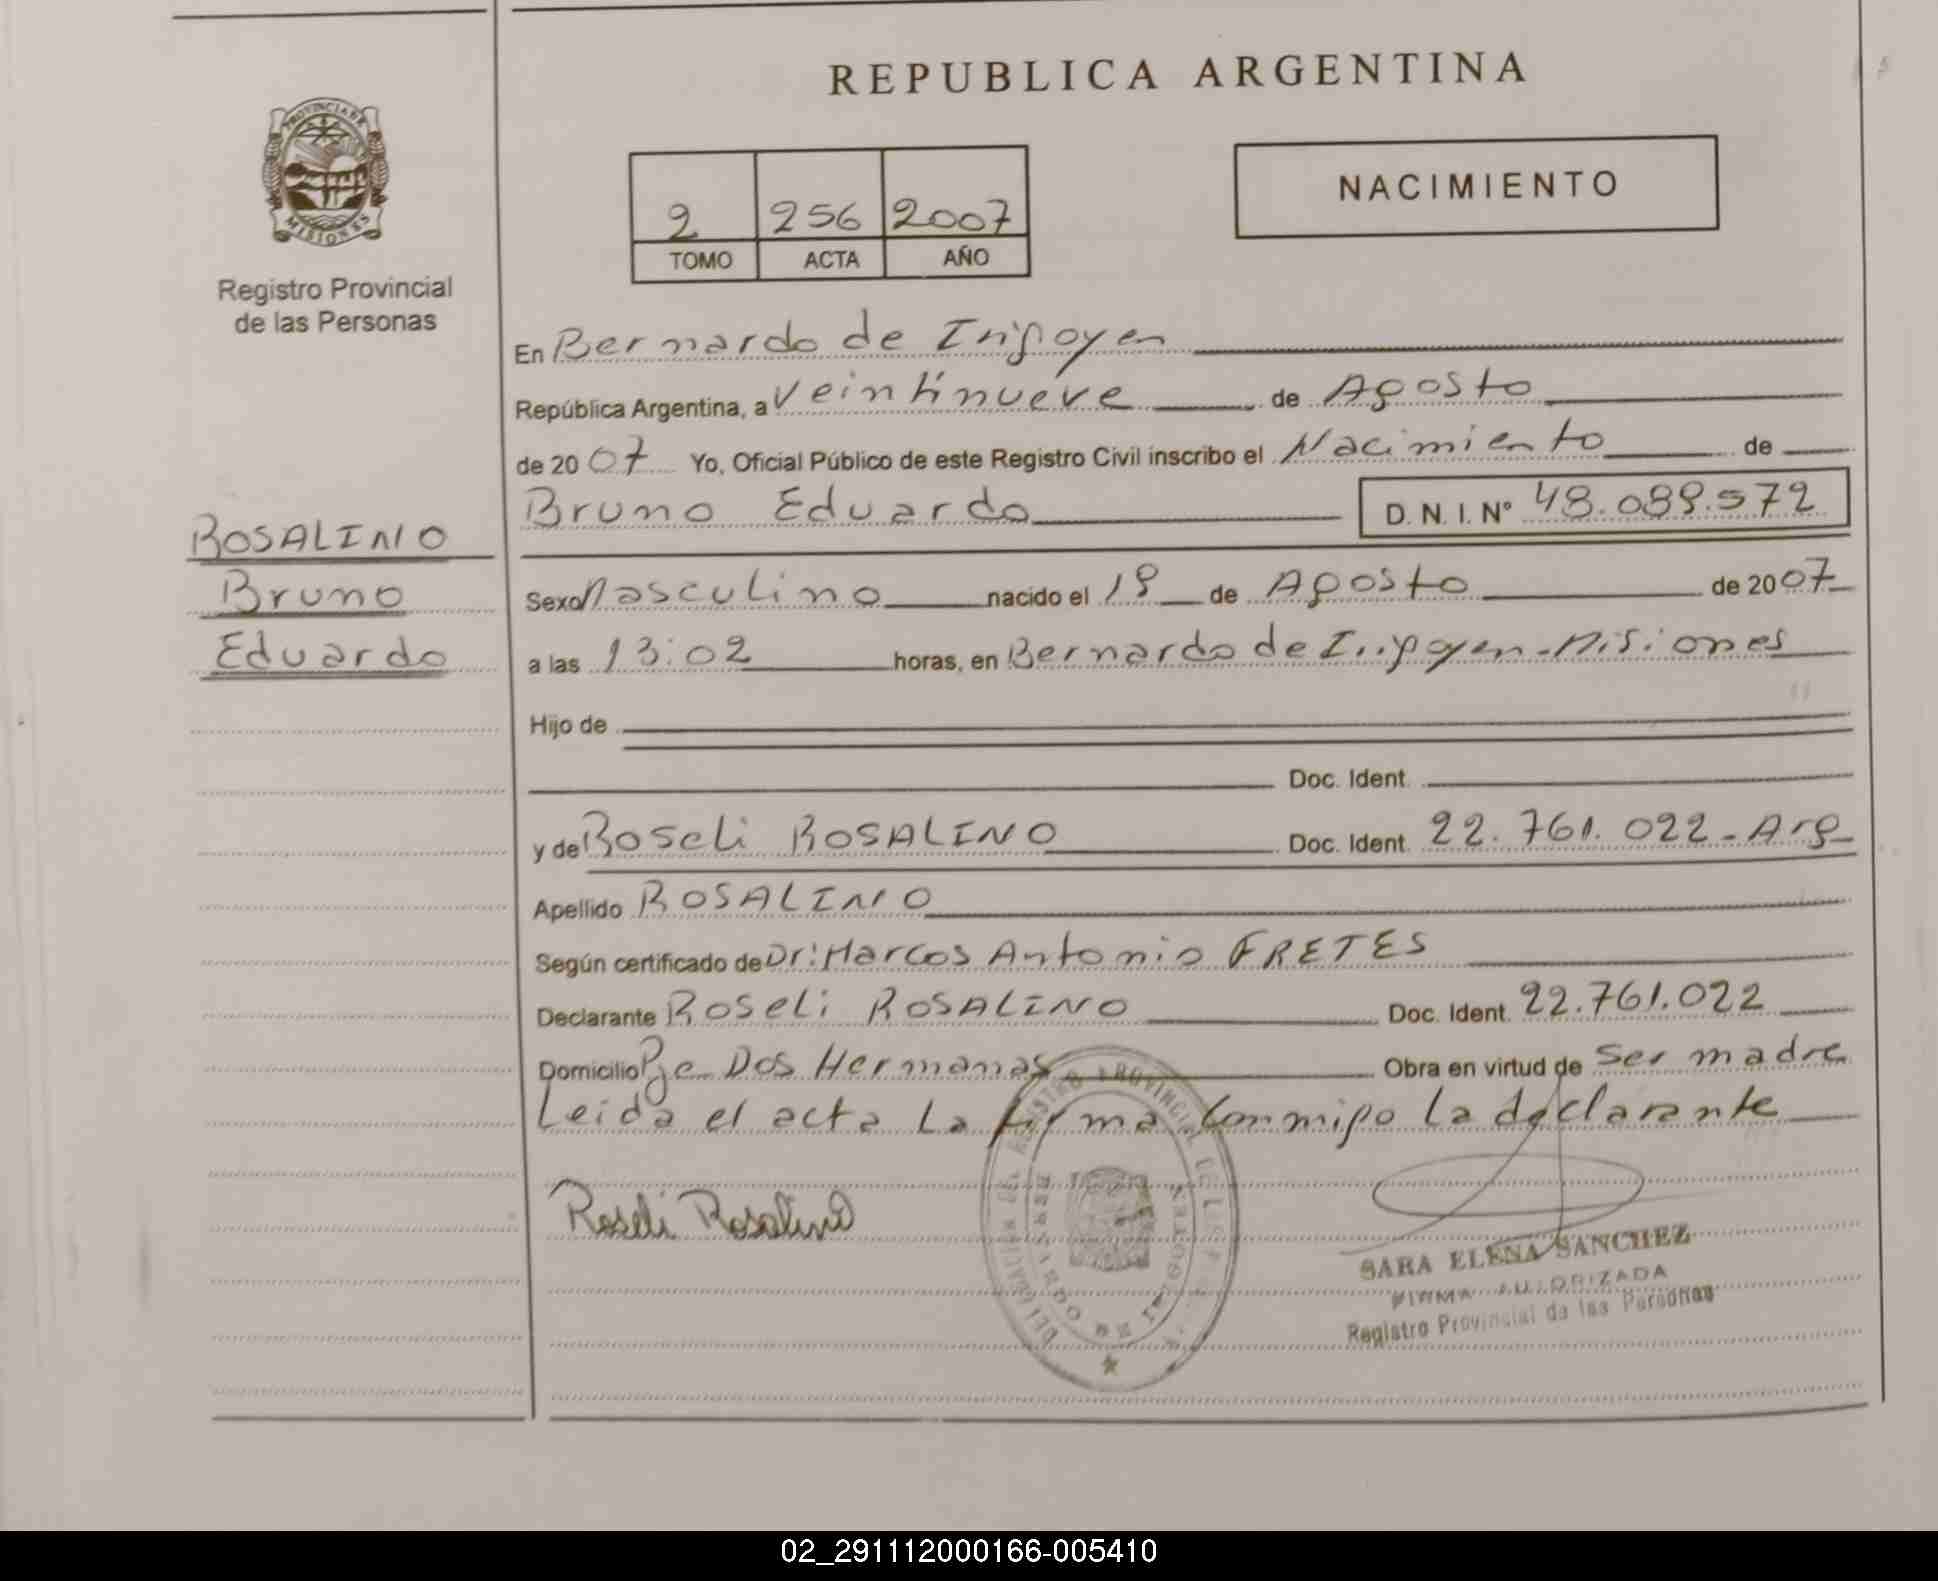 REPUBLICA ARGENTINA
PROVINCIA DE
MISIONES
Registro Provincial
de las Personas
2 256 2007
TOMO ACTA AÑO
NACIMIENTO
En Bernardo de Irigoyen
República Argentina, a Veintinueve de Agosto
de 2007 Yo, Oficial Público de este Registro Civil inscribo el Nacimiento de
Bruno Eduardo D. N. I. N° 48.089.572
ROSALINO
Bruno
Eduardo
Sexo Masculino nacido el 19 de Agosto de 2007
a las 13:02 horas, en Bernardo de Irigoyen-Misiones
Hijo de
Doc. Ident.
y de Roseli ROSALINO Doc. Ident. 22.761.022-Arg
Apellido ROSALINO
Según certificado de Dr: Marcos Antonio FRETES
Declarante Roseli ROSALINO Doc. Ident. 22.761.022
Domicilio Pje Dos Hermanas Obra en virtud de Ser madre
Leida el acta La firma Conmigo La declarante
Roseli Rosalino
SARA ELENA SANCHEZ
FIRMA AUTORIZADA
Registro Provincial de las Personas
02_291112000166-005410